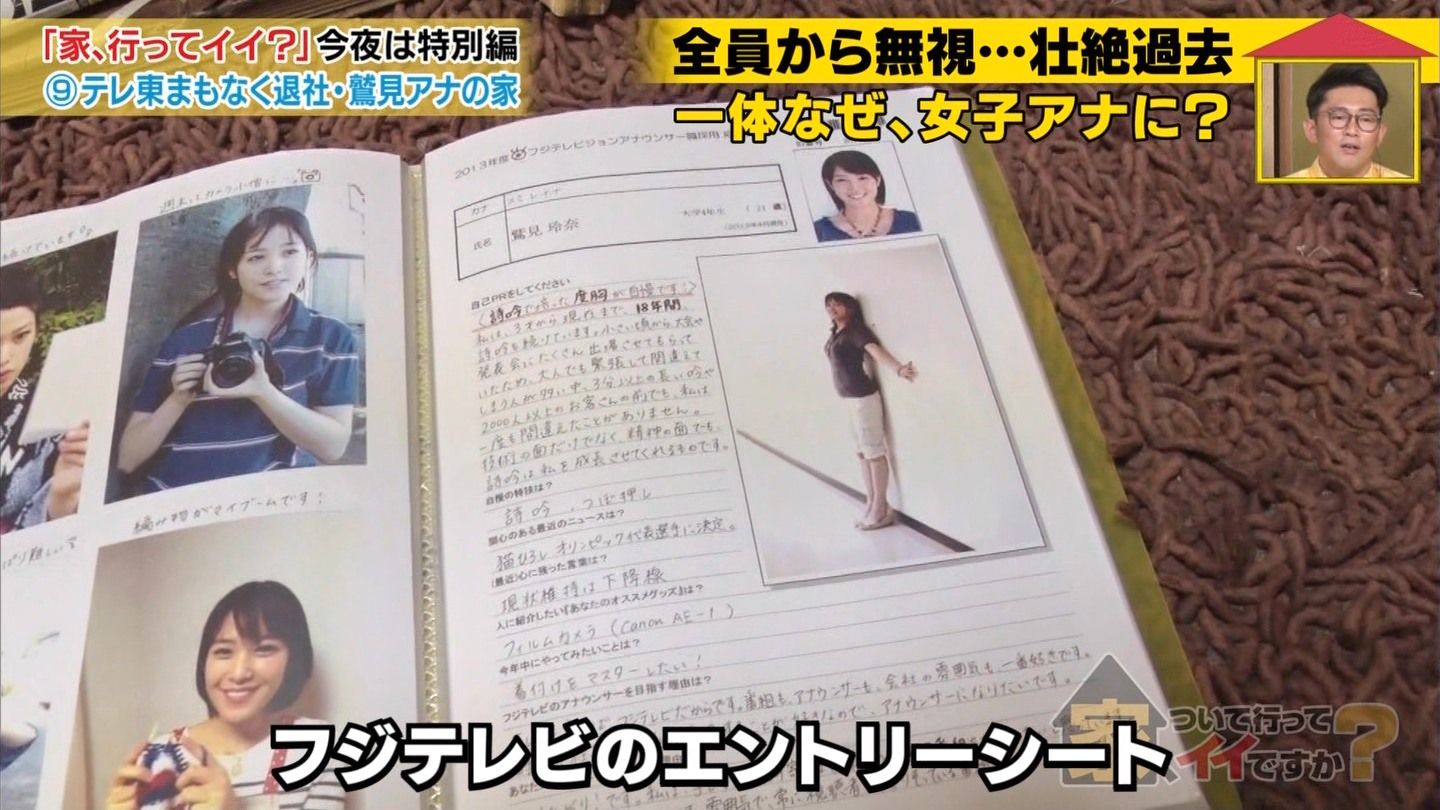 「家、行ってイイ?」今夜は特別編
⑨テレ東まもなく退社・鷲見アナの家
全員から無視…壮絶過去
一体なぜ、女子アナに?
週末はカメラ小僧に…
編み物がマイブームです!
2013年度 フジテレビジョンアナウンサー職採用
カナ スミ レイナ
氏名 鷲見 玲奈
大学4年生 (21歳)
(2013年4月現在)
自己PRをしてください
〈詩吟で培った度胸が自慢です!〉
私は、3才から現在まで、18年間、
詩吟を続けています。小さい頃から大会や
発表会にたくさん出場させてもらって
いたため、大人でも緊張して間違えて
しまう人が多い中、3分以上の長い吟や
2000人以上のお客さんの前でも、私は
一度も間違えたことがありません。
技術の面だけでなく、精神の面でも、
詩吟は私を成長させてくれるものです。
自慢の特技は?
詩吟・つぼ押し
関心のある最近のニュースは?
猫ひろし オリンピック代表選手に決定。
(最近)心に残った言葉は?
現状維持は下降線
人に紹介したい『あなたのオススメグッズ』は?
フィルムカメラ(Canon AE-1)
今年中にやってみたいことは?
着付けをマスターしたい!
フジテレビのアナウンサーを目指す理由は?
フジテレビだからです。番組も、アナウンサーも、会社の雰囲気も一番好きです。
が好きなので、アナウンサーになりたいです。
フジテレビのエントリーシート
家、ついて行ってイイですか?